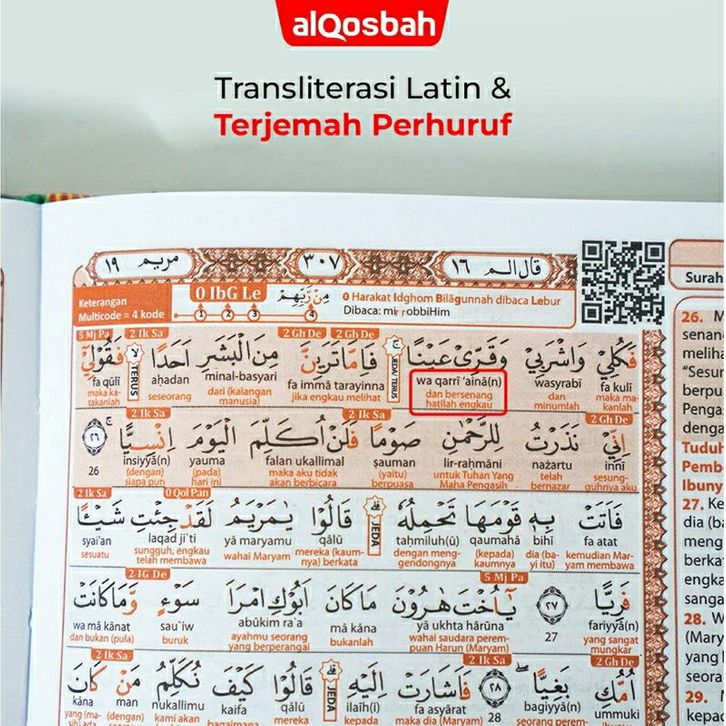 alQosbah
Transliterasi Latin &
Terjemah Perhuruf
مريم ١٩
٣٠٧
قال الم ١٦
Surah
Keterangan
Multicode = 4 kode
0 IbG Le
1 2 3 4
مِنْ رَّبِّهِمْ
0 Harakat Idghom Bilāgunnah dibaca Lebur
Dibaca: mir robbiHim
5 Mj Pa 2 Ik Sa 2 Gh De 2 Gh De
فَكُلِيْ وَاشْرَبِيْ وَقَرِّيْ عَيْنًا JEDA/ TERUS فَاِمَّا تَرَيِنَّ مِنَ الْبَشَرِ اَحَدًا TERUS فَقُوْلِيْٓ
fa kulī wasyrabi wa qarrī ‘ainā(n) fa immā tarayinna minal-basyari aḥadan fa qūlī
maka makanlah dan minumlah dan bersenang hatilah engkau jika engkau melihat dari (kalangan manusia) seseorang maka katakanlah
2 Ik Sa 2 Ik Sa 2 Gh De
اِنِّيْ نَذَرْتُ لِلرَّحْمٰنِ صَوْمًا فَلَنْ اُكَلِّمَ الْيَوْمَ اِنْسِيًّا ٢٦
innī nażartu lir-raḥmāni ṣauman falan ukallimal yauma insiyyā(n) 26
sesungguhnya aku telah bernazar untuk Tuhan Yang Maha Pengasih (yaitu) berpuasa maka aku tidak akan berbicara (pada) hari ini (dengan) siapa pun
2 Ik Sa 0 Qol Pan
فَاَتَتْ بِهٖ قَوْمَهَا تَحْمِلُهٗ JEDA قَالُوْا يٰمَرْيَمُ لَقَدْ جِئْتِ شَيْـًٔا
fa atat bihī qaumahā taḥmiluh(ū) qālū yā maryamu laqad ji`ti syai'an
kemudian Maryam membawa dia (bayi itu) (kepada) kaumnya dengan menggendongnya mereka (kaumnya) berkata wahai Maryam sungguh, engkau telah membawa sesuatu
2 IG De 5 Mj Pa
فَرِيًّا ٢٧ يٰٓاُخْتَ هٰرُوْنَ مَا كَانَ اَبُوْكِ امْرَاَ سَوْءٍ وَّمَا كَانَتْ
fariyyā(n) 27 yā ukhta hārūna mā kāna abūkim ra'a sau'iw wa mā kānat
yang sangat mungkar wahai saudara perempuan Harun (Maryam) bukanlah ayahmu seorang yang berperangai buruk dan bukan (pula)
2 Ik Sa 2 Ik Sa 2 Gh De
اُمُّكِ بَغِيًّا ٢٨ فَاَشَارَتْ اِلَيْهِ JEDA قَالُوْا كَيْفَ نُكَلِّمُ مَنْ كَانَ
ummuki bagiyyā(n) 28 fa asyārat ilaih(i) qālū kaifa nukallimu man kāna
26.
27. Ke
28. W
29.